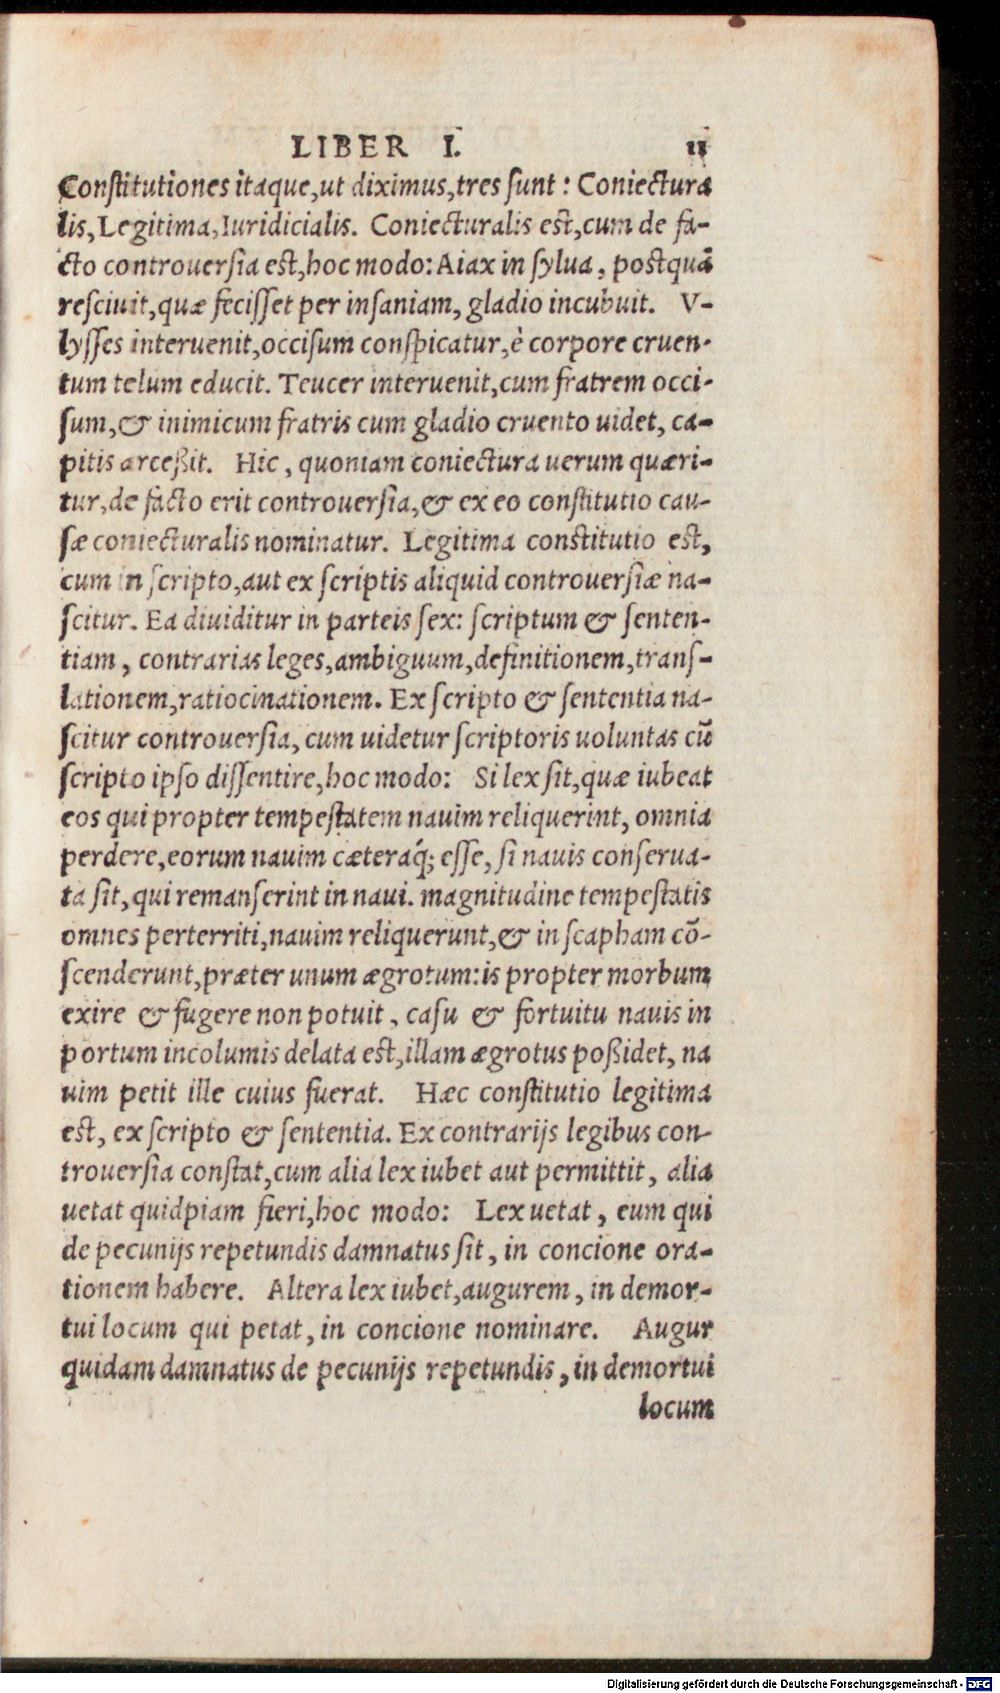 LIBER I. 11
Constitutiones itaque,ut diximus,tres sunt: Coniectura
lis,Legitima,Iuridicialis. Coniecturalis est,cum de fa-
cto controuersia est,hoc modo: Aiax in sylua, postquã
resciuit,quæ fecisset per insaniam, gladio incubuit. V-
lysses interuenit,occisum conspicatur,è corpore cruen-
tum telum educit. Teucer interuenit,cum fratrem occi-
sum,& inimicum fratris cum gladio cruento uidet, ca-
pitis arceßit. Hic, quoniam coniectura uerum quæri-
tur,de facto erit controuersia,& ex eo constitutio cau-
sæ coniecturalis nominatur. Legitima constitutio est,
cum in scripto,aut ex scriptis aliquid controuersiæ na-
scitur. Ea diuiditur in parteis sex: scriptum & senten-
tiam, contrarias leges,ambiguum,definitionem,trans-
lationem,ratiocinationem. Ex scripto & sententia na-
scitur controuersia, cum uidetur scriptoris uoluntas cũ
scripto ipso dissentire,hoc modo: Si lex sit,quæ iubeat
eos qui propter tempestatem nauim reliquerint, omnia
perdere,eorum nauim cæteraq́; esse, si nauis conserua-
ta sit,qui remanserint in naui. magnitudine tempestatis
omnes perterriti,nauim reliquerunt,& in scapham cõ-
scenderunt,præter unum ægrotum:is propter morbum
exire & fugere non potuit, casu & fortuitu nauis in
portum incolumis delata est,illam ægrotus poßidet, na
uim petit ille cuius fuerat. Hæc constitutio legitima
est, ex scripto & sententia. Ex contrarijs legibus con-
trouersia constat,cum alia lex iubet aut permittit, alia
uetat quidpiam fieri,hoc modo: Lex uetat, eum qui
de pecunijs repetundis damnatus sit, in concione ora-
tionem habere. Altera lex iubet,augurem, in demor-
tui locum qui petat, in concione nominare. Augur
quidam damnatus de pecunijs repetundis, in demortui
locum
Digitalisierung gefördert durch die Deutsche Forschungsgemeinschaft - DFG